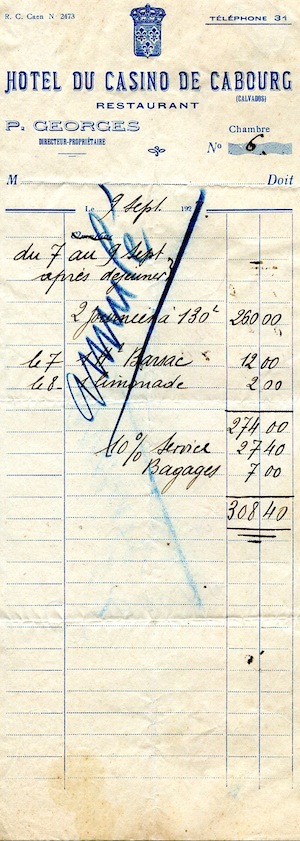 R. C. Caen N° 2473
TÉLÉPHONE 31
HOTEL DU CASINO DE CABOURG
(CALVADOS)
RESTAURANT
P. GEORGES
DIRECTEUR-PROPRIÉTAIRE
Chambre
N° 6
M Doit
Le 9 Sept. 192
du 7 au 9 sept
après déjeuner
2 journées à 130 260 00
le 7 Barsac 12 00
le 8 1 limonade 2 00
274 00
10% Service 27 40
Bagages 7 00
308 40